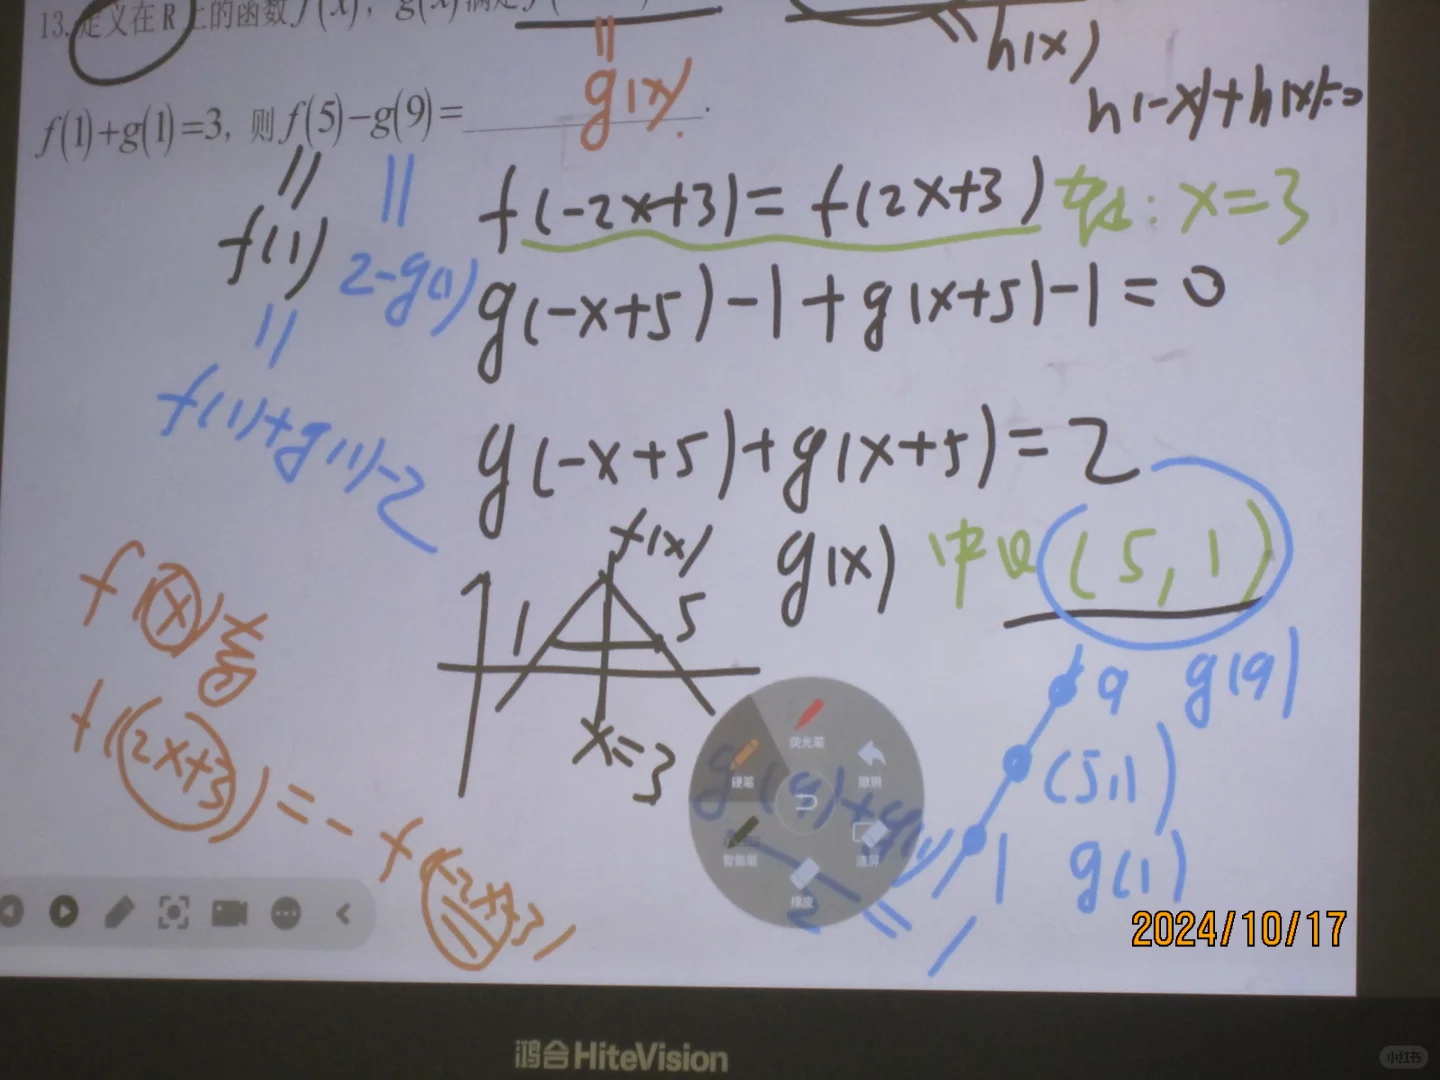 13. 定义在 R 上的函数 f(x), g(x) 满足
h(x)
g(x)
h(-x)+h(x)=0
f(1)+g(1)=3, 则 f(5)-g(9)=
f(1)
2-g(1)
f(-2x+3)=f(2x+3)
: x=3
g(-x+5)-1+g(x+5)-1=0
f(1)+g(1)-2
g(-x+5)+g(x+5)=2
f(x)
g(x) 中心 (5,1)
1
5
x=3
f(x)
f(2x+3)=-f(-2x+3)
9 g(9)
(5,1)
1 g(1)
荧光笔
硬笔
撤销
智能笔
清屏
橡皮
g(9)+g(1)
2
=1
2024/10/17
鸿合HiteVision
小红书